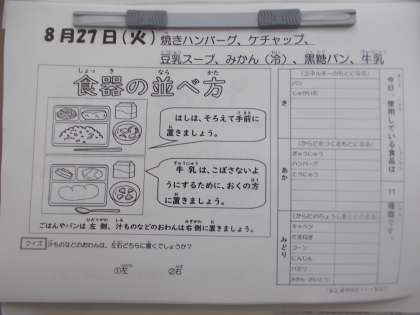 8月27日(火)焼きハンバーグ、ケチャップ、
豆乳スープ、みかん(冷)、黒糖パン、牛乳
食器の並べ方
はしは、そろえて手前に
置きましょう。
牛乳は、こぼさないよ
うにするために、おくの方
に置きましょう。
ごはんやパンは左側、汁ものなどのおわんは右側に置きましょう。
クイズ 汁ものなどのおわんは、左右どちらに置くでしょうか?
①左 ②右
今日、使用している食品は
11
種類です
き
(エネルギーのもとになる)
パン
じゃがいも
あか
(からだをつくるもとになる)
ぎゅうにゅう
ハンバーグ
とうにゅう
みどり
(からだのちょうしを
キャベツ
たまねぎ
コーン
にんじん
パセリ
みかん